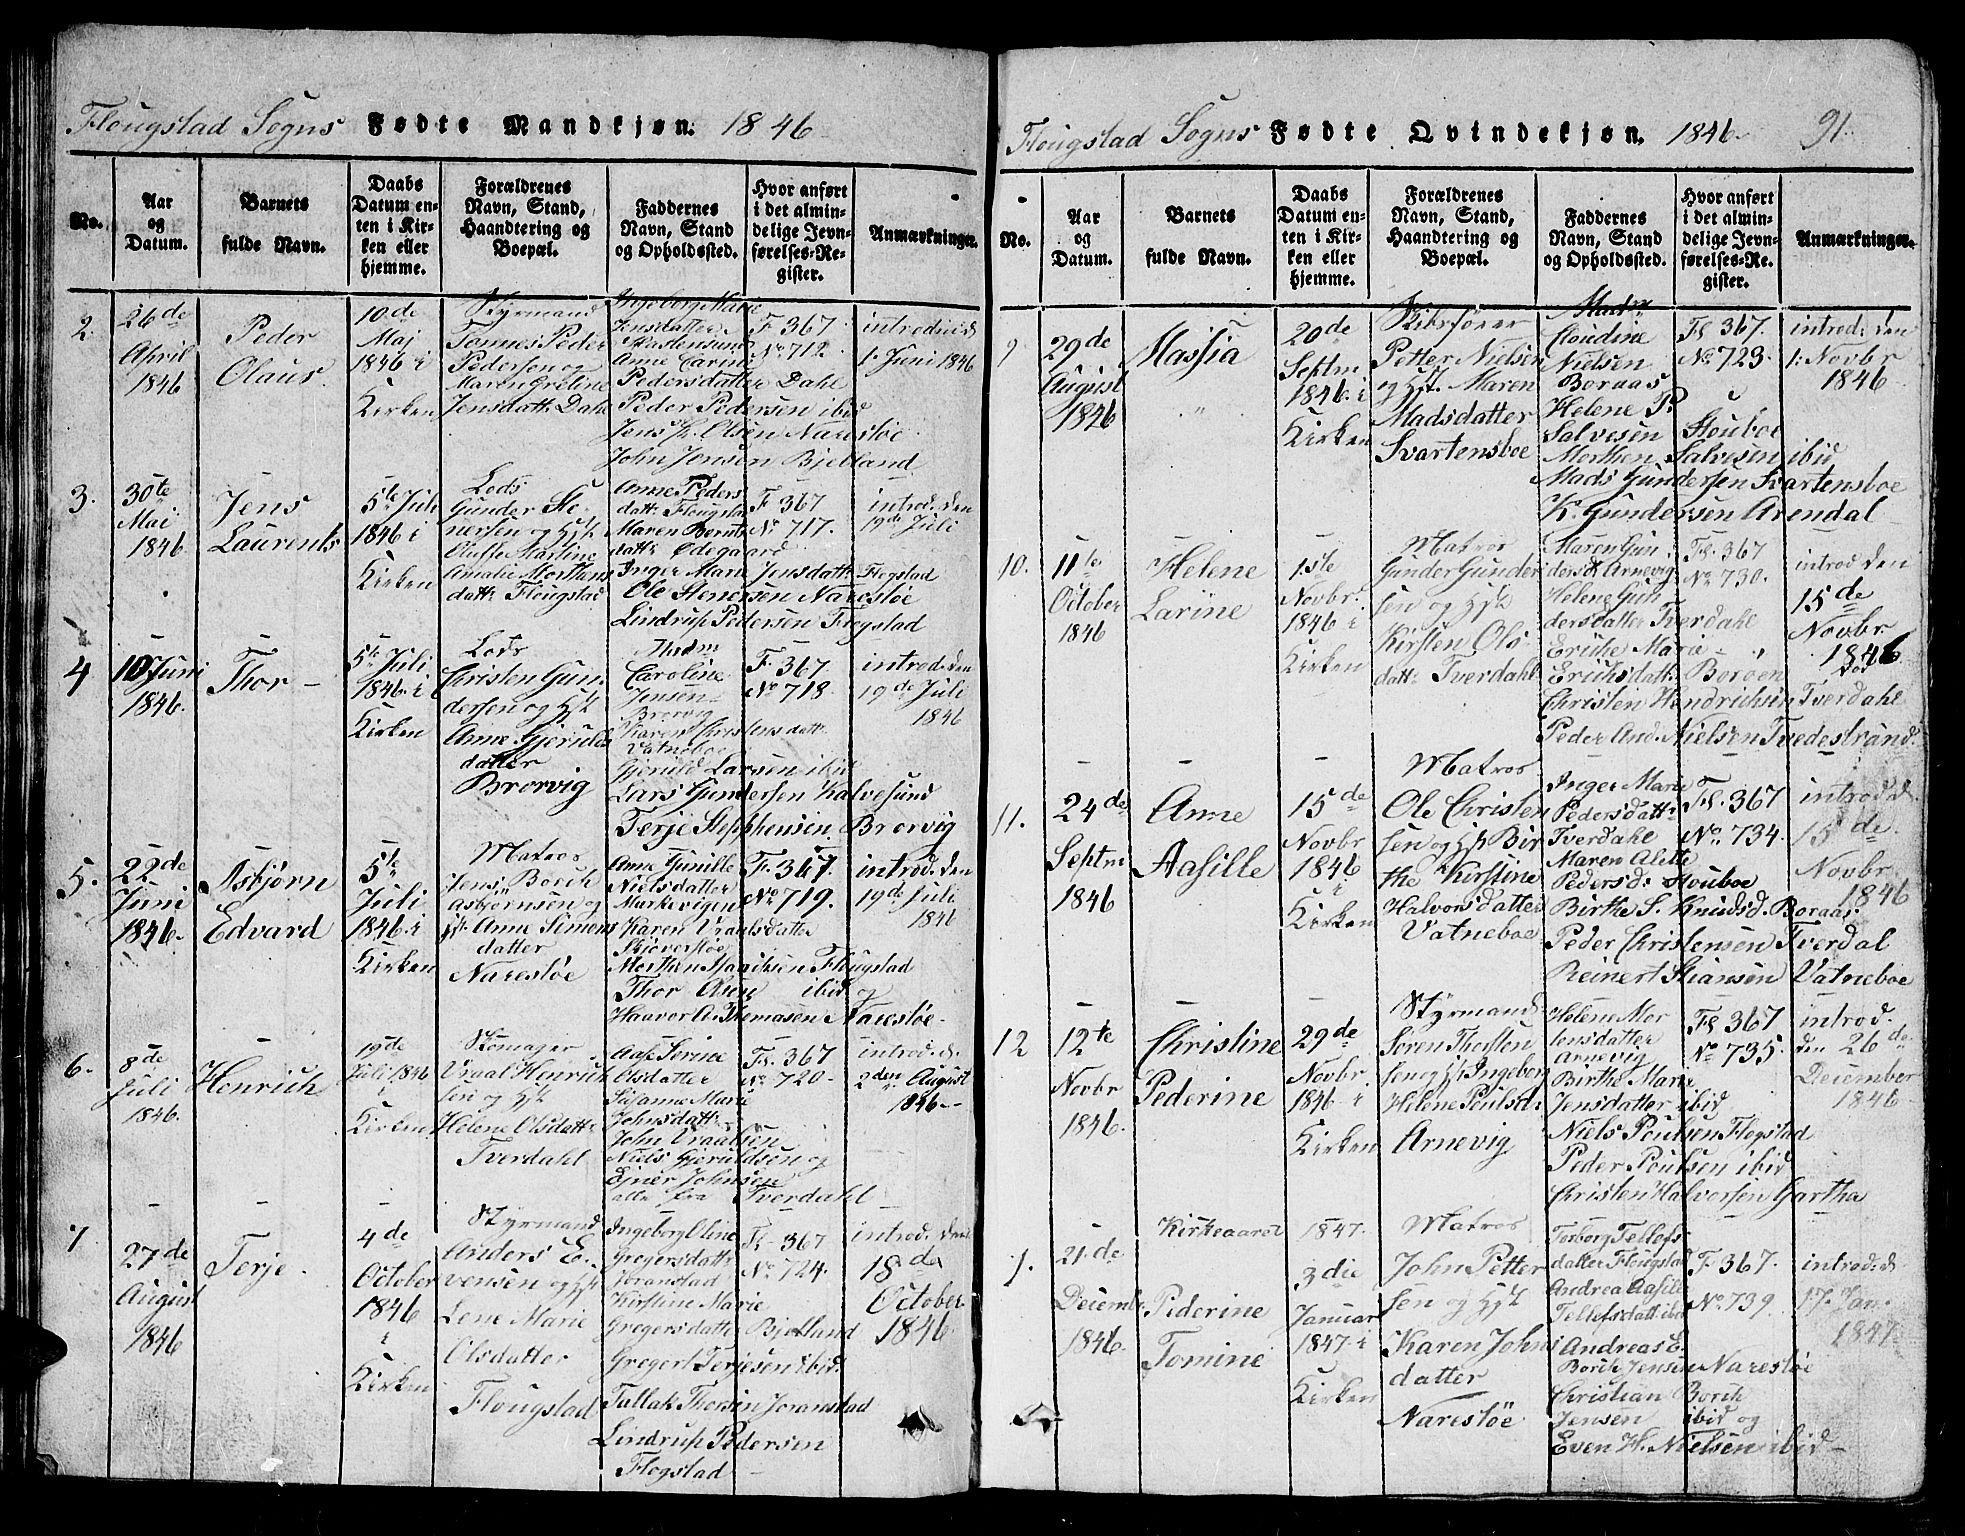 Flougstad Sogns Fødte Mandkjøn. 1846
No.
Aar og Datum.
Barnets fulde Navn.
Daabs Datum enten i Kirken eller hjemme.
Forældrenes Navn, Stand, Haandtering og Boepæl.
Faddernes Navn, Stand og Opholdssted.
Hvor anført i det almindelige Jevnførelses-Register.
Anmærkninger.
2.
26de
April
1846
Peder
Olaus
10de
Maj
1846 i
Kirken
Styrmand
Tønnes Peder
Pedersen og
Maren Greline
Jensdattr Dahl
Ingeborg Marie
Jensdatter
Anne Carine
Pedersdatter Dahl
Peder Pedersen ibid
Jens Chr. Olsen Narestøe
John Jensen Bjelland
F 367
No 712
introd. d.
1. Juni 1846
3.
30te
Mai
1846
Jens
Laurents
5te Juli
1846 i
Kirken
Lods
Gunder Ste-
nersen og Hst
Oluffe Martine
Amalie Morthens
dattr Flougstad
Anne Peders
dattr Flougstad
Maren Berntb
dattr Ødegaard
Inger Marie Jensdattr Flogstad
Ole Hendrsen Narestøe
Lindrup Pedersen Flogstad
F 367
No 717.
introd. den
19de Juli
4
10 Juni
1846.
Thor -
5te Juli
1846 i
Kirken
Lods
Christen Gun
dersen og Hst
Anne Gjeruls
datter
Brørvig
Madm
Caroline
Jensen
Brørvig
Karen Christensdattr
Vatneboe
Gjeruld Larsen ibid
Lars Gundersen Kalvesund
Terje Stephensen Brørvig
F. 367
No 718.
introd. den
19de Juli
1846
5.
22de
Juni
1846.
Asbjørn
Edvard
5te
Juli
1846 i
Kirken
Matros
Jens Borch
Asbjørnsen og
Hst. Anne Simens
datter
Narestøe
Anne Gunille
Nielsdatter
Markevigen
Karen Vraalsdatter
Skjoverstøe
Morthen Henriksen Flougstad
Thor Asen ibid og
Haavor A. Thomasen Narestøe
F. 367.
No 719.
introd. den
19de Juli
1846
6.
8de
Juli
1846.
Henrich
19de
Juli 1846
i
Kirken
Skomager
Vraal Henrich
sen og Hst
Helene Olsdattr
Tverdahl
Aase Serine
Olsdatter
Susanne Marie
Johnsdattr
John Vraalsen
Niels Gjeruldsen og
Ejner Johnsen
alle fra Tverdahl
Fl. 367
No. 720.
introd. d.
2den August
1846
7
27de
August
1846
Terje
4de
October
1846
i
Kirken
Styrmand
Anders E-
vensen og Hst
Lene Marie
Olsdatter
Flougstad
Ingeborg Oline
Gregersdattr
Joranstad
Kirstine Marie
Gregersdatter Bjelland
Gregert Terjesen ibid.
Tallak Thorsen Joranstad
Lindrup Pedersen
Flogstad
Fl. 367
No. 724.
introd. den
18de
October
1846
Flougstad Sogns Fødte Qvindekjøn. 1846 91.
No.
Aar og Datum.
Barnets fulde Navn.
Daabs Datum enten i Kirken eller hjemme.
Forældrenes Navn, Stand, Haandtering og Boepæl.
Faddernes Navn, Stand og Opholdssted.
Hvor anført i det almindelige Jevnførelses-Register.
Anmærkninger.
9
29de
August
1846
Massia
20de
Septm
1846 i
Kirken
Skibsfører
Petter Nielsen
og Hst. Maren
Madsdatter
Svartensboe
Madm
Cloudine
Nielsen
Boraas
Helene P.
Salvesen Stouboe
Morthen Salvesen ibid
Mads Gundersen Svartensboe
K. Gundersen Arendal
Fl 367.
No 723.
introd. den
1. Novbr
1846
10.
11te
October
1846
Helene
Larine
1ste
Novbr.
1846 i
Kirken
Matros
Gunder Gunder
sen og Hst
Kirsten Ols
dattr Tverdahl
Maren Gun
dersd Arnevig
Helene Gun
dersdatter Tverdahl
Eriche Marie
Erichsdattr Borøen
Christen Hendrichsen Tverdahl
Peder And. Nielsen Tvedestrand.
Fl. 367
No 730.
introd den
15de
Novbr
1846
11.
24de
Septm
1846
Anne
Aasille
15de
Novbr
1846
i
Kirken
Matros
Ole Christen
sen og Hst Bir
the Kirstine
Halvorsdatter
Vatneboe
Inger Marie
Pedersdattr
Tverdahl
Maren Alette
Pedersd: Stouboe
Birthe S. Knudsd. Boraas
Peder Christensen Tverdal
Reinert Stiansen Vatneboe
Fl. 367
No. 734.
introd. d.
15de
Novbr
1846
12
12te
Novbr
1846.
Christine
Pederine
29de
Novbr
1846 i
Kirken
Styrmand
Søren Thorsten
sen og Hst Ingeborg
Helene Poulsd:
Arnevig
Helene Mor
tensdatter
Arnevig
Birthe Marie
Jensdatter ibid
Niels Poulsen Flogstad
Peder Poulsen ibid
Christen Halvorsen Gartha
Fl 367
No 735.
introd.
den 26de
December
1846
Kirkeaaret 1847.
1.
21de
Decembr
1846.
Pederine
Tomine
3die
Januar
1847 i
Kirken
Matros
John Petter
sen og Hst
Karen Johns
datter
Narestøe
Torborg Tellefs
datter Flougstad
Andrea Aasile
Tellefsdatt ibd
Andreas E.
Borch Jensen Narestøe
Christian Borch
Jensen ibid og
Even H. Nielsen ibid
F 367.
No. 739
introd. d.
17 Jan.
1847